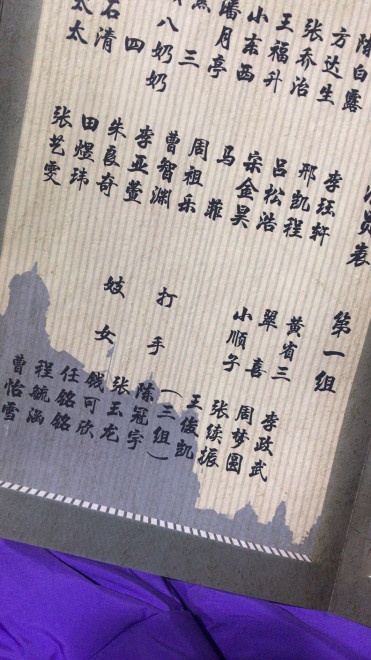 员表
第一组
陈白露 李珏轩
方达生 邢凯程
张乔治 吕松浩
王福升 宋金昊
小东西 马菲
潘月亭 周祖乐
三 曹智渊
八奶奶 李亚萱
四 朱良奇
石清 田煜玮
太太 张艺雯
黄省三 李政武
翠喜 周梦圆
小顺子 张续振
打手 王俊凯
(三组)
陈冠宇
张玉龙
妓女 钱可欣
任铭铭
程毓涵
曹怡雪